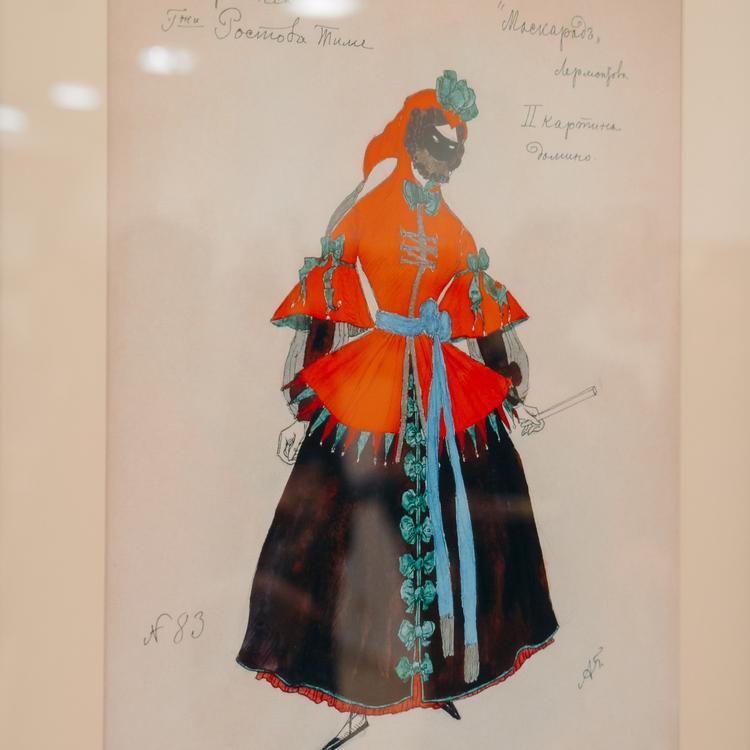 Г-жи Ростова Тиме
"Маскарадъ"
Лермонтова
II картина
домино.
N 83
АГ.